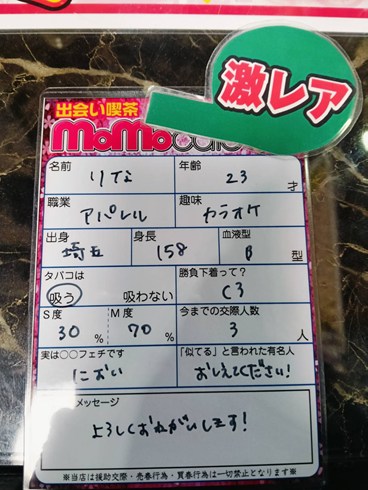 激レア
出会い喫茶
MoMocafe
名前 りな 年齢 23 才
職業 アパレル 趣味 カラオケ
出身 埼玉 身長 158 血液型 B 型
タバコは 勝負下着って?
吸う 吸わない C3
S度 M度 今までの交際人数
30 % 70 % 3 人
実は○○フェチです 「似てる」と言われた有名人
におい おしえてください!
メッセージ
よろしくおねがいします!
※当店は援助交際・売春行為・買春行為は一切禁止となります※